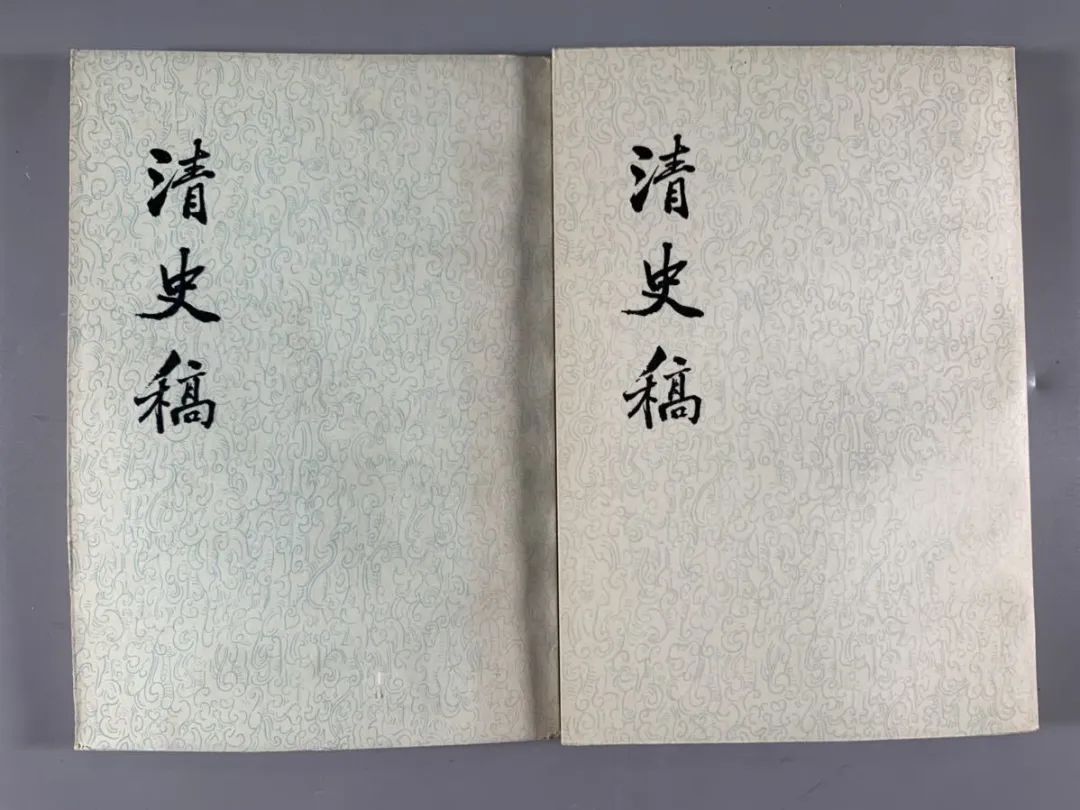 清史稿
清史稿